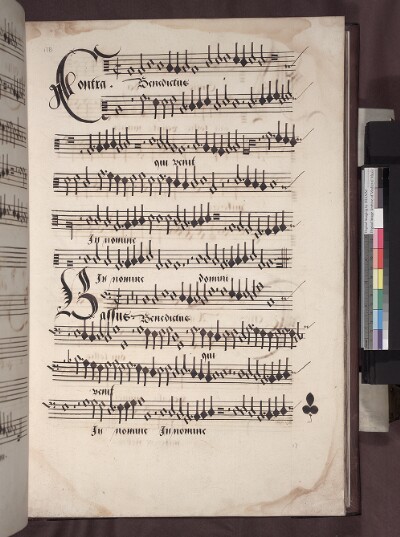 Contra. Benedictus
qui venit
In nomine
In nomine Domini
Bassus. Benedictus
qui
venit
In nomine In nomine